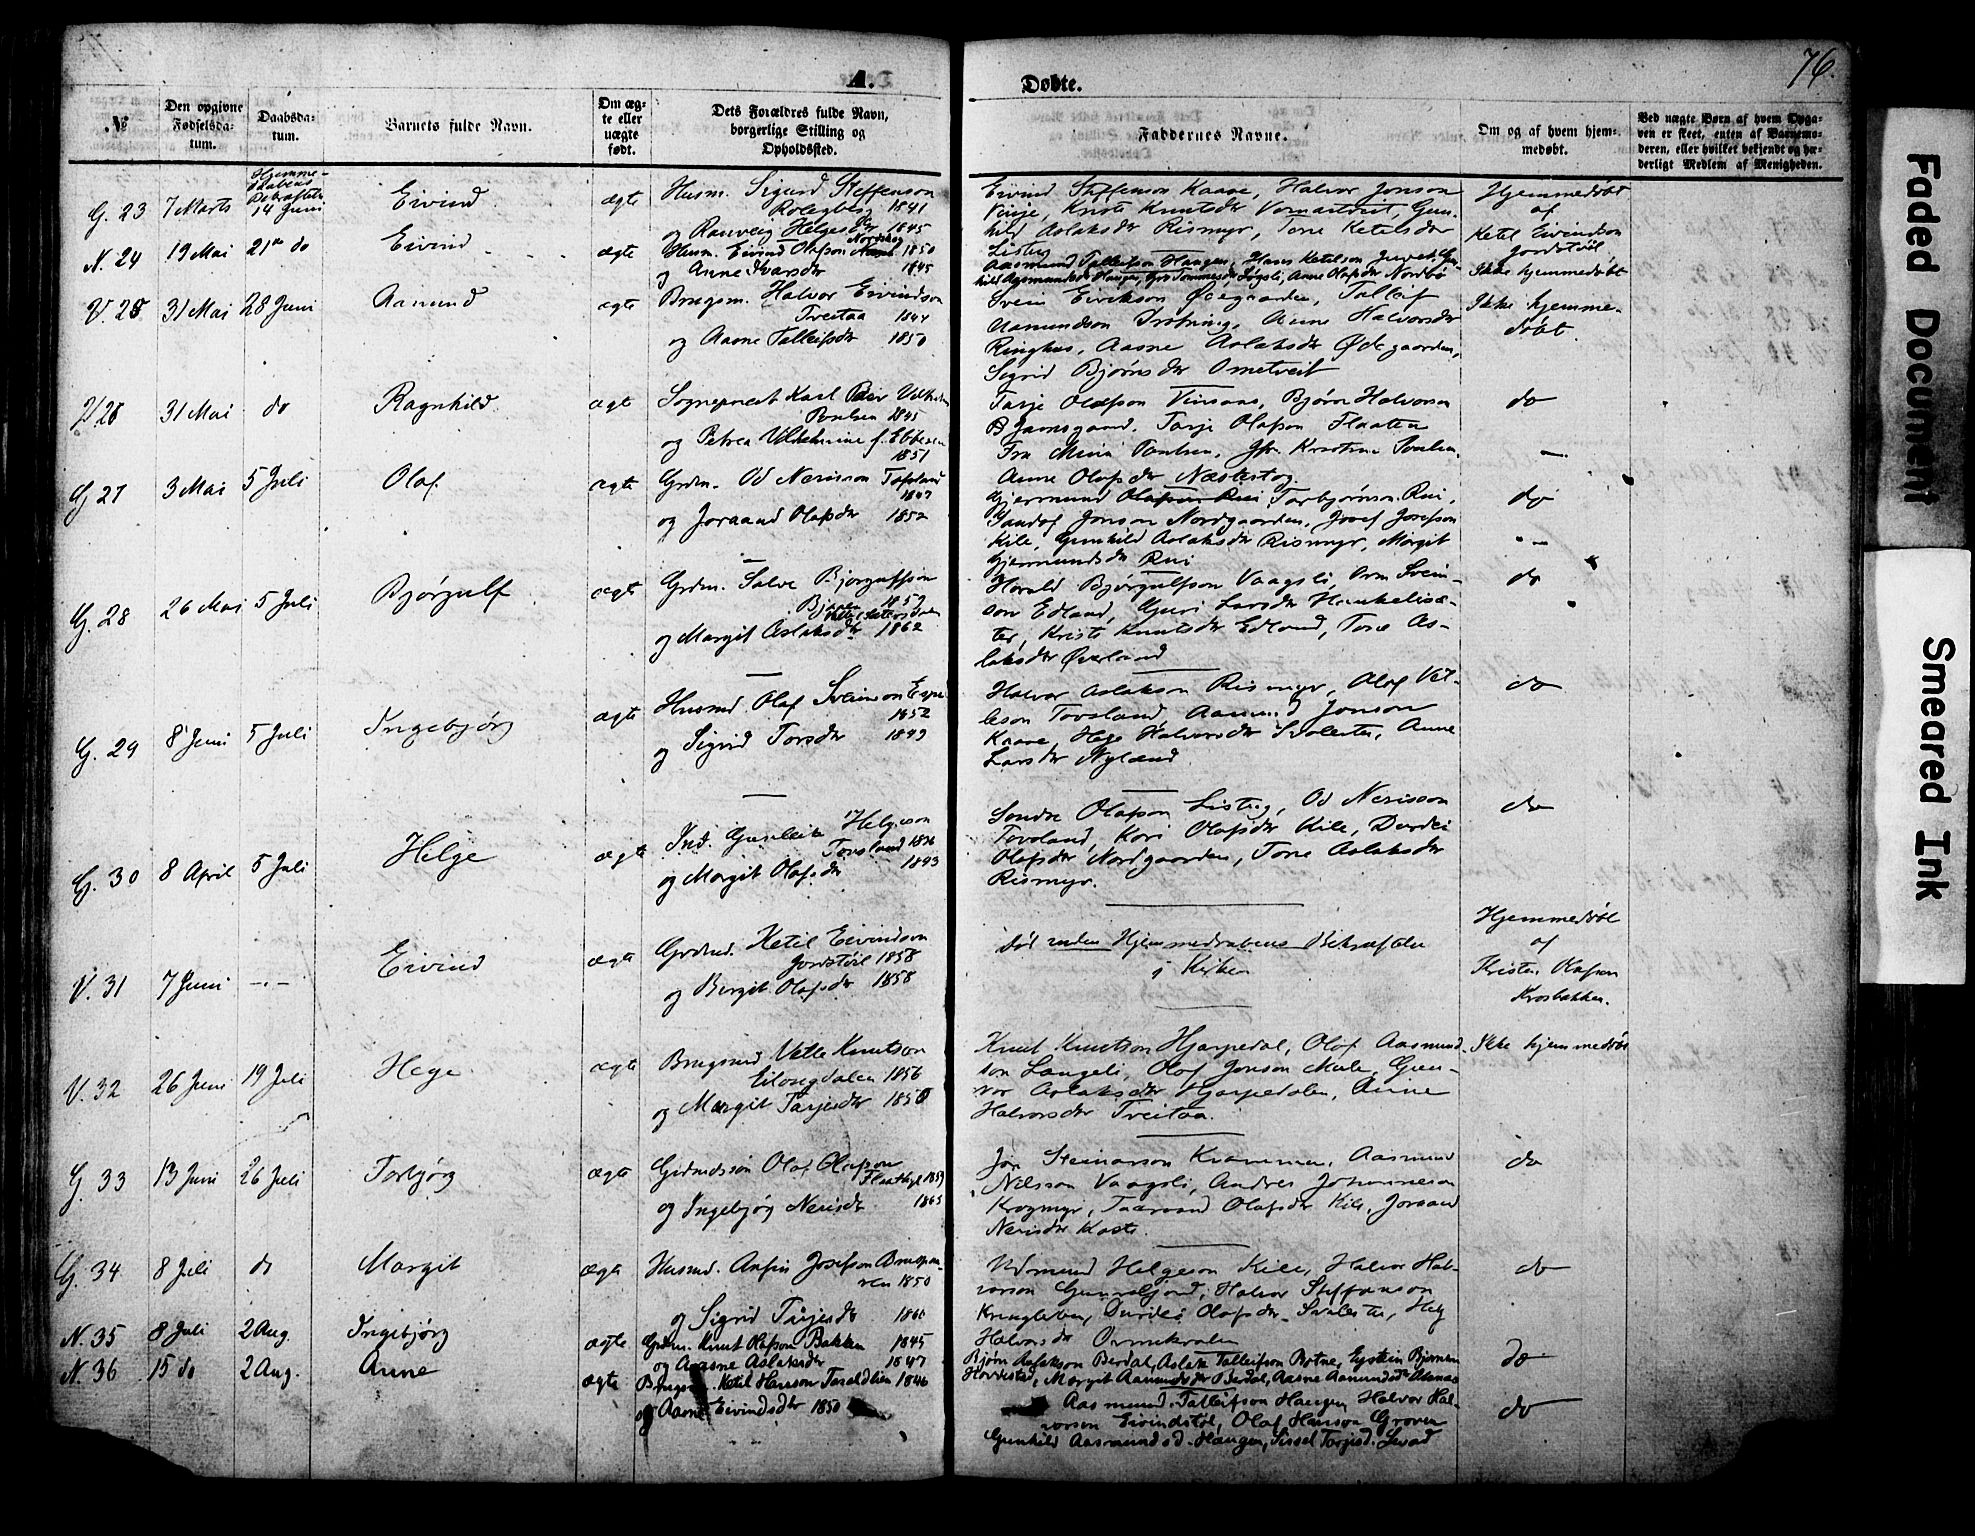 A.
Døbte.
76.
№
Den opgivne Fødselsda- tum.
Daabsda- tum.
Barnets fulde Navn.
Om æg- te eller uægte født.
Dets Forældres fulde Navn, borgerlige Stilling og Opholdssted.
Faddernes Navne.
Om og af hvem hjem- medøbt.
Ved uægte Børn af hvem Opga- ven er skeet, enten af Barnemo- deren, eller hvilket bekjendt og hæ- derligt Medlem af Menigheden.
Hjemme-
daabens
Bekræftelse
G. 23 7 Marts 14 Juni Eivind ægte Husm. Sigurd Steffenson
1841
og Ranveig Helgesdtr 1845
Eivind Steffenson Kaave, Halvor Jonson
Vinje, Kristi Knutsdtr Vemartveit, Gun-
hild Aslaksdtr Rismyr, Tone Ketelsdtr
Listug
Hjemmedøbt
af
Ketel Eivindson
Jordstøil
N. 24 19 Mai 21de do Eivind ægte Husm. Eivind Olafson 1850
og Anne Ivarsdtr 1845
Aasmund Talleifson Haugen, Hans Ketelson
hild Aasmundsdtr Haugen, Anne Olafsdtr Nordbø
Ikke hjemmedøbt
V. 25 31 Mai 28 Juni Aamund ægte Brugsm. Halvor Eivindson
Treitaa 1844
og Aasne Talleifsdtr 1850
Svein Eirikson Øigaarden, Talleif
Aamundson Trobring, Anne Halvorsdtr
Ringhus, Aasne Aslaksdtr Ødegaarden,
Sigrid Bjørnsdtr Ometveit
Ikke hjemme-
døbt.
V. 26 31 Mai do Ragnhild ægte Sogneprest Karl
Poulsen 1845
og Petrea Vilhelmine f. Ebbesen
1851
Tarje Olafson Vinsaas, Bjørn Halvorson
Bjaansgaard, Tarje Olafson Flaaten
Fru Mina Poulsen, Jfr. Kristine Poulsen,
Anne Olafsdtr Næstestog.
do
—
G. 27 3 Mai 5 Juli Olaf ægte Grdm. Od Nerisson Tofsland
1847
og Joraand Olafsdtr 1852
Gjermund Olafson Rui Torbjørnson Rui,
Jonson Nordgaarden, Josef Josefson
Kile, Gunhild Aslaksdtr Rismyr, Margit
Gjermundsdtr Rui
do
G. 28 26 Mai 5 Juli Bjørgulf ægte Grdm. Salve Bjørgulfson
1859
og Margit Aslaksdtr 1862
Harald Bjørgulfson Vaagsli, Orm Svein-
son Edland, Guri Larsdtr Haukelisæ-
ter, Kristi Knutsdtr Edland, Tone As-
laksdtr Øverland
do
G. 29 8 Juni 5 Juli Ingebjørg ægte Husmd. Olaf Sveinson
1852
og Sigrid Torsdtr 1849
Halvor Aslakson Rismyr, Olaf Vet-
leson Tovsland, Aamund Jonson
Kaave, Hege Halvorsdtr Svalestu, Anne
Larsdtr Nyland
do
G. 30 8 April 5 Juli Helge ægte Ind. Gunleik Helgeson
Tovsland 1836
og Margit Olafsdtr 1843
Sondre Olafson Listug, Od Nerisson
Tovsland, Kari Olafsdtr Kile, Durdei
Olafsdtr Nordgaarden, Tone Aslaksdtr
Rismyr.
do
V. 31 7 Juni –.– Eivind ægte Grdmd. Ketil Eivindson
Jordstøil 1858
og Birgit Olafsdtr 1858
død uden Hjemmedaabens Bekræftelse
i Kirken
Hjemmedøbt
af
Kristen Olafson
Krosbakken.
V. 32 26 Juni 19 Juli Hege ægte Brugsmd Vetle Knutson
1856
og Margit Tarjeisdtr 1850
Knut Knutson Hjarpedal, Olaf Aasmund-
son Langeli, Olaf Jonson Mule, Gun-
vor Aslaksdtr Hjarpedalen, Anne
Halvorsdtr Treitaa.
Ikke hjemmedøbt
G. 33 13 Juni 26 Juli Torbjørg ægte Grdmdssøn Olaf Olafson
1859
og Ingebjørg Nerisdtr 1865
Jon Steinarson Krammen, Aasmund
Nilsson Vaagsli, Andres Johanneson
Krogmyr, Taarand Olafsdtr Kile, Joraand
Nerisdtr Kaste.
do
G. 34 8 Juli do Margit ægte Husmd. Anfin Josefson
1850
og Sigrid Tarjeisdtr 1860
Kile, Halvor Hal-
vorson Gunvaljord, Halvor Steffenson
Durdei Olafsdtr Svalestu,
Halvorsdtr
do
N. 35 8 Juli 2 Aug. Ingebjørg ægte Grdm. Knut Olafson Bakken 1845
og Aasne Aslaksdtr 1847
Bjørn Aslakson Berdal, Aslak Talleifson Botne, Eystein Bjørnson
Hovdestad, Margit Aamundsdtr Berdal, Aasne Aamundsdtr
do
N. 36 15 do 2 Aug. Anne ægte Ketil Hansson 1846
og Aasne Eivindsdtr 1850
Aasmund Talleifson Haugen, Halvor Hal-
vorson Eivindstøl, Olaf Hanson Groven
Gunhild Aasmundsd. Haugen, Sissel Torjeisd.
do
Faded Document
Smeared Ink